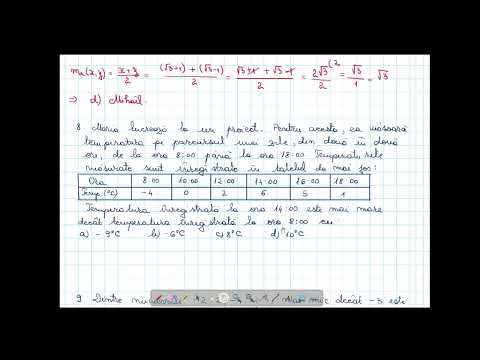 mₐ(x,y) = x+y/2 = (√3+1) + (√3-1)/2 = √3+1 + √3-1/2 = 2√3/2 (2 = √3/1 = √3
⇒ d) Mihail.
8. Maria lucrează la un proiect. Pentru acesta, ea măsoară
temperatura pe parcursul unei zile, din două în două
ore, de la ora 8:00 până la ora 18:00. Temperaturile
măsurate sunt înregistrate în tabelul de mai jos:
Ora 8:00 10:00 12:00 14:00 16:00 18:00
Temp.(°C) -4 0 2 6 5 1
Temperatura înregistrată la ora 14:00 este mai mare
decât temperatura înregistrată la ora 8:00 cu:
a) -9°C b) -6°C c) 8°C d) 10°C
9. Dintre mai mic decât -3 este